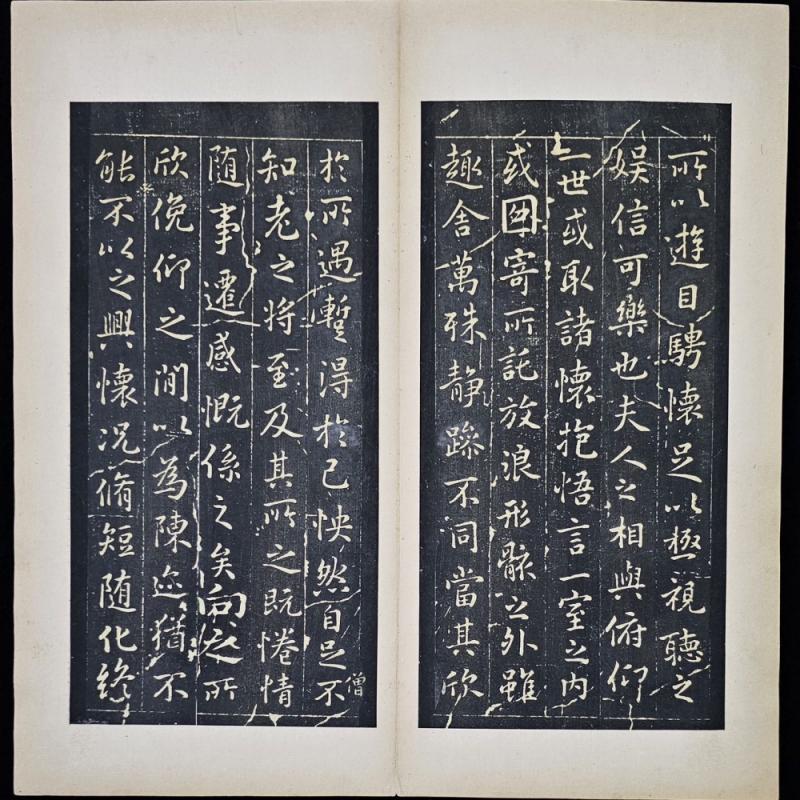 所以遊目騁懷足以極視聽之
娱信可樂也夫人之相與俯仰
一世或取諸懷抱悟言一室之内
或因寄所託放浪形骸之外雖
趣舍萬殊静躁不同當其欣
於所遇暫得於己怏然自足不
僧
知老之將至及其所之既惓情
随事遷感慨係之矣向之所
欣俛仰之閒以為陳迹猶不
能不以之興懷况脩短随化終